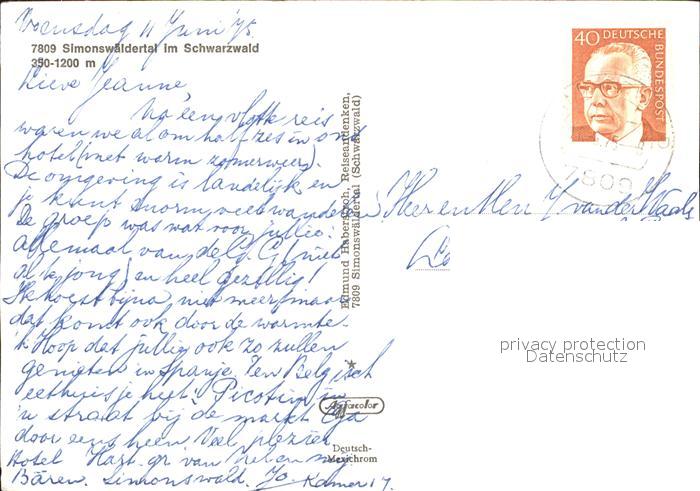 Woensdag 11 Juni '75
7809 Simonswäldertal im Schwarzwald
350-1200 m
Lieve Jeanne,
Na een vlotte reis
waren we al om half zes in ons
hotel (met warm zomerweer).
De omgeving is landelijk en
je kunt enorm veel wandelen
De groep was wat voor jullie:
allemaal van de
al te jong) en heel gezellig!
Ik hoest bijna niet meer, maar
dat komt ook door de warmte.
'k Hoop dat jullie ook zo zullen
genieten in Spanje. Een Belgisch
eethuisje heet: Picotin in
'n straat bij de markt. Ga
door eens heen. Veel plezier
Hart. gr. van
Hotel Bären. Simonswald. Jo. Kamer 17.
Edmund Haberstroh, Reiseandenken,
7809 Simonswäldertal (Schwarzwald)
Agfacolor
Deutsch-
Mexichrom
40 DEUTSCHE
BUNDESPOST
7809
Heer en Mevr. v. van der Waals
privacy protection
Datenschutz